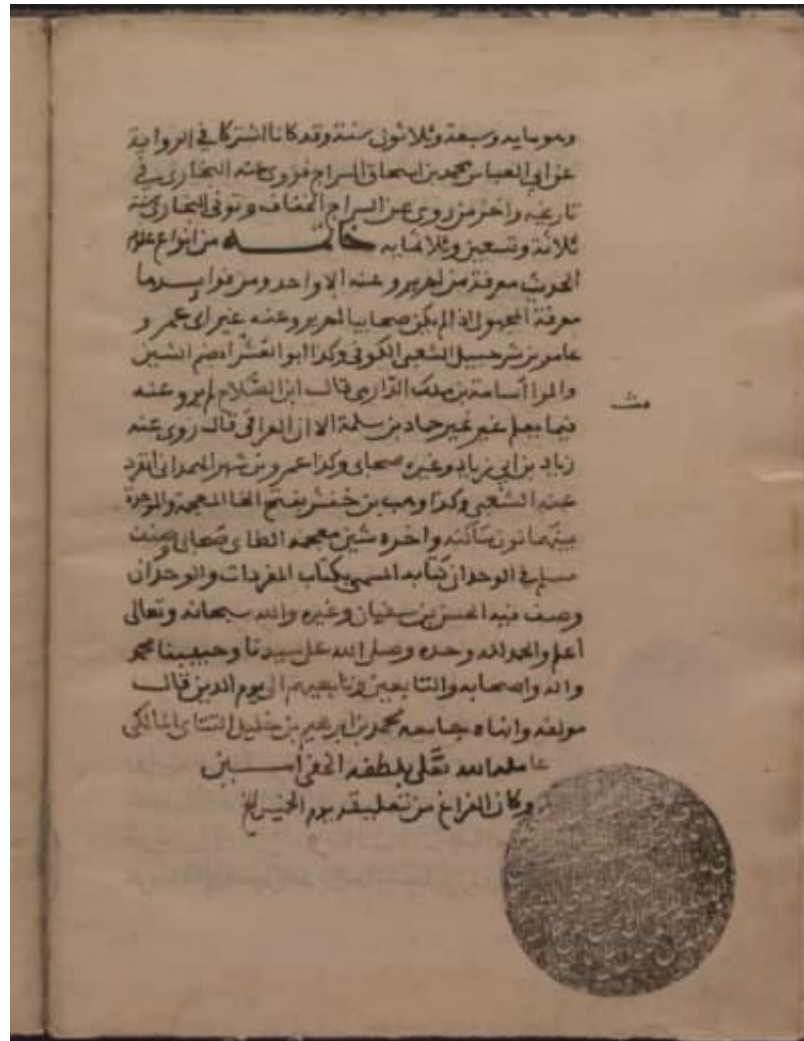 وهو مايه وسبعة وثلاثون سنة وقد كانا اشتركا في الرواية
عن ابي العباس محمد بن اسحاق السراج فروى عنه البخارى في
تاريخه واخر من روى عن السراج الخفاف وتوفى البخارى سنة
ثلاثة وتسعين وثلاثمايه خاتمه من انواع علوم
الحديث معرفة من لم يرو عنه الا واحد ومن فوايده
معرفة المجهول اذا لم يكن صحابيا لم يرو عنه غير
عامر بن شرحبيل الشعبى الكوفى وكذا ابو العشراء بضم الشين
والرا أسامة بن ملك الدّارمى قال ابن الصّلاح لم يرو عنه
فيما يعلم غير حماد بن سلمة الا ان العراقى قال روى عنه
زياد بن ابى زياد وغيره صحابى وكذا عمرو بن شهر الهمدانى انفرد
عنه الشعبى وكذا وهب بن خنبش بفتح الخا المعجمة والموحدة
بينهما نون ساكنه واخره شين معجمه الطاى صحابى وصنف
مسلم في الوحدان كتابه المسمى بكتاب المفردات والوحدان
وصنف فيه الحسن بن سفيان وغيره والله سبحانه وتعالى
أعلم والحمد لله وحده وصلى الله على سيدنا وحبيبنا محمد
واله واصحابه والتابعين وتابعيهم الى يوم الدين قال
مولفه وانهاه جامعه محمد بن ابرهيم بن خليل التتاى المالكى
عامله الله تعلى بلطفه الخفى امــــين
وكان الفراغ من تعليقه يوم الخميس